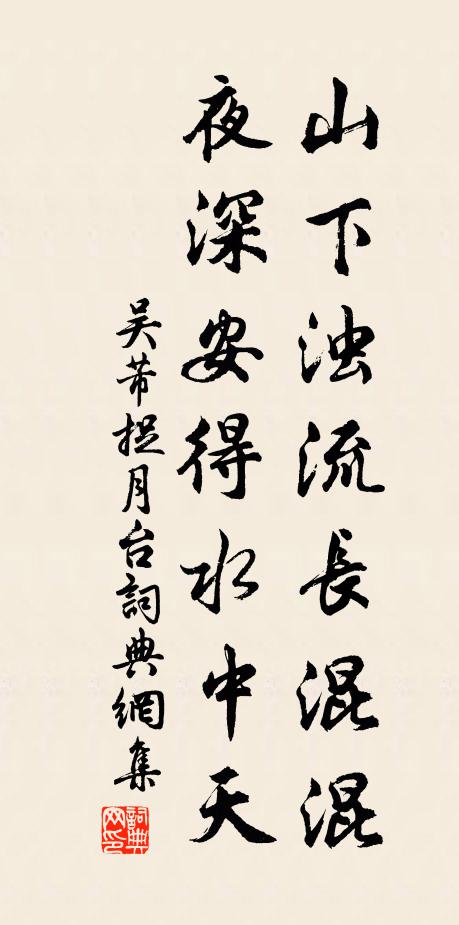 山下浊流長混混
夜深安得水中天
吴芾捉月台詞典網集
詞典網印